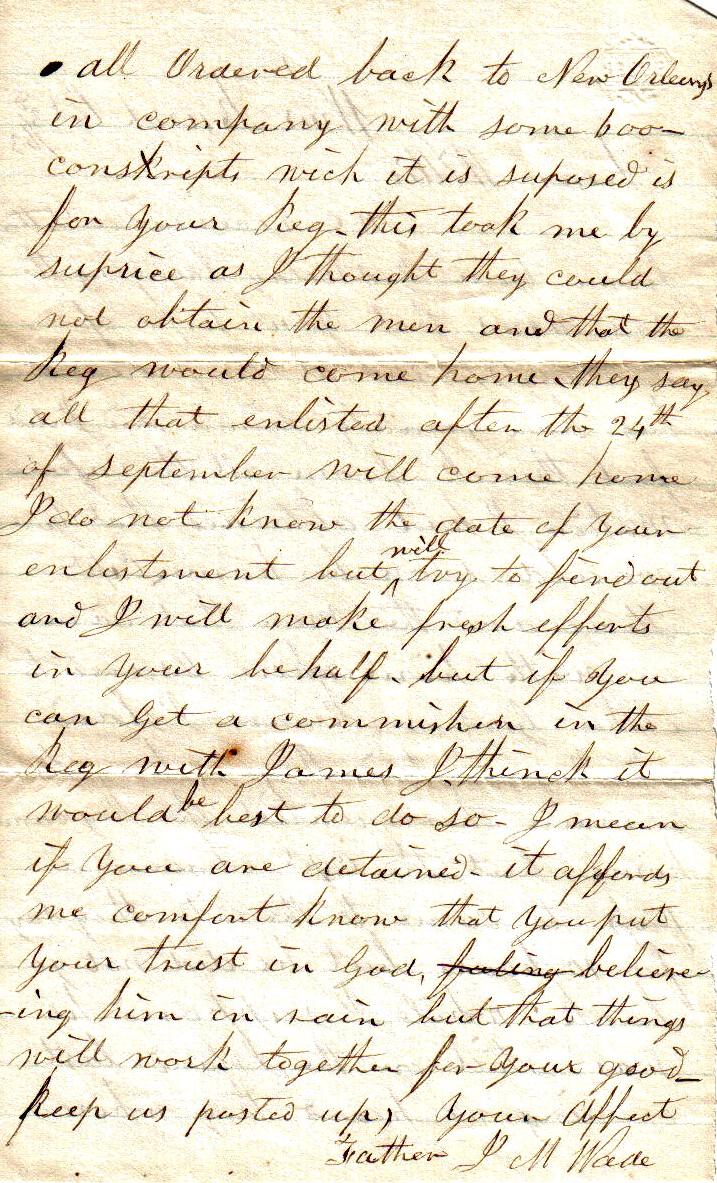 all Ordered back to New Orleans
in company with some 600-
conskripts wich it is suposed is
for your Reg - this took me by
suprice as I thought they could
not obtain the men and that the
Reg would come home they say
all that enlisted after the 24th
of september will come home
I do not know the date of your
enlostment but will try to find out
and I will make fresh efforts
in your behalf. but if you
can Get a commishen in the
Reg with James I thinck it
would be best to do so - I mean
if you are detained - it affords
me comfort know that you put
your trust in God, believe-
-ing him in vain but that things
will work together for your good -
keep us posted up, your affect
Father J M Wade